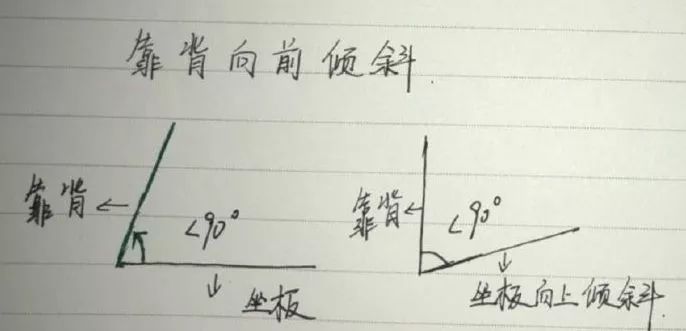 靠背向前倾斜.
靠背 <90°
坐板
靠背 <90°
坐板向上倾斜.